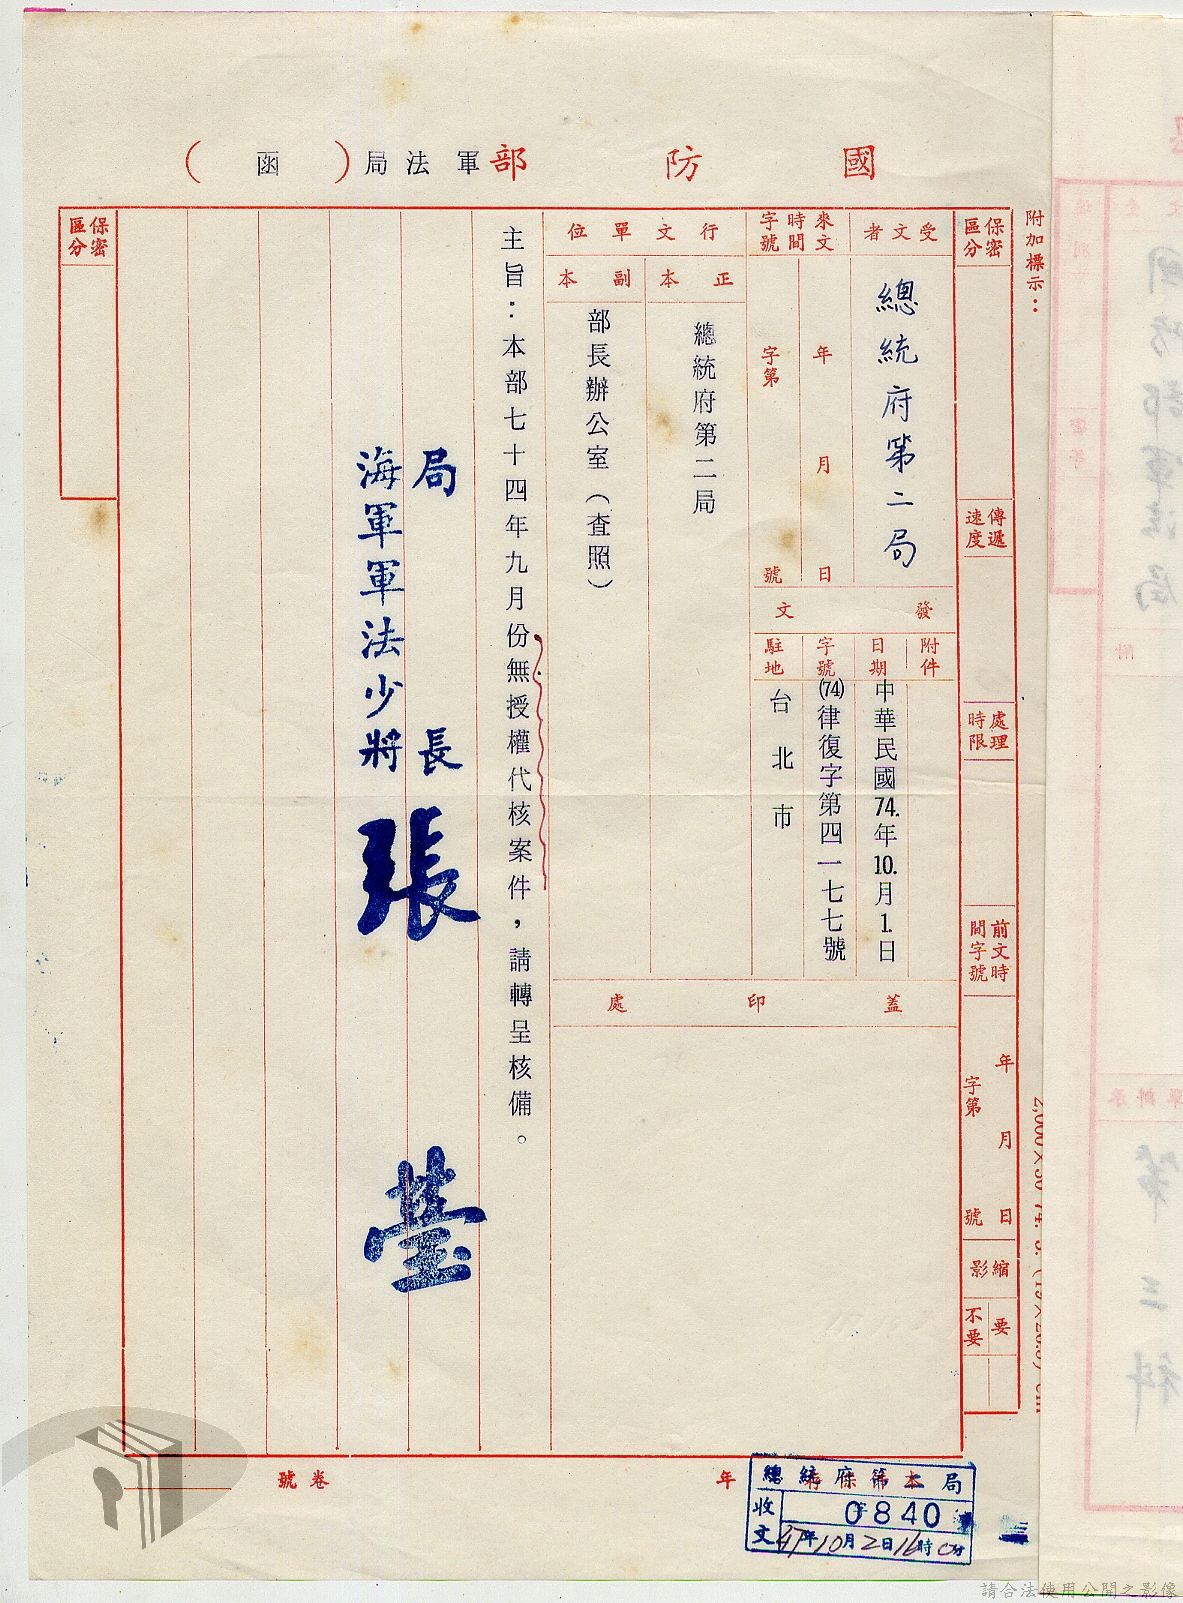 國防部軍法局（函）
附加標示：
保密區分
傳遞速度
處理時限
前文時間字號
年月日
字第號
縮影
要
不要
受文者
總統府第二局
來文時間字號
年月日
字第號
發文
附件
日期
中華民國74.年10.月1.日
字號
(74)律復字第四一七七號
駐地
台北市
行文單位
正本
總統府第二局
副本
部長辦公室（查照）
蓋印處
主旨：本部七十四年九月份無授權代核案件，請轉呈核備。
局長
海軍軍法少將
張
保密區分
年
卷號
局
收文
0840
年10月2日16時0分
請合法使用公開之影像